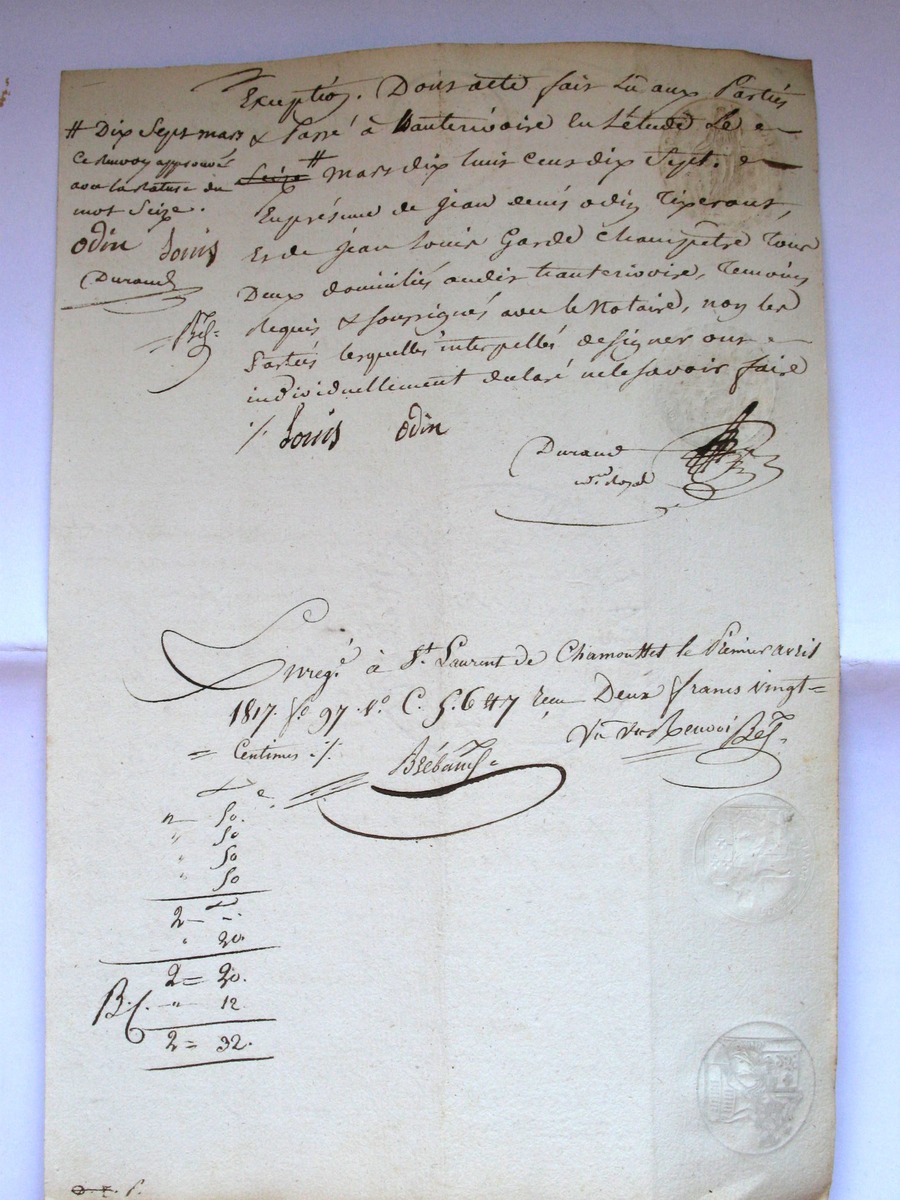 Exception. Dont acte fait Lu aux Parties
& Passé à hauterivoire En Létude Le
Seize # mars dix huit cent dix Sept. en
Enprésence de jean denis odin Tixerant,
Et de jean Louis Garde champetre Tous
Deux domiciliés audit hauterivoire, Temoins
Requis & soussignés avec le Notaire, non les
Parties lesquelles interpellés de signer ont
individuellement declaré ne le savoir faire
# Dix Sept mars
Ce Renvoy approuvé
avec la Rature du
mot Seize.
odin Louis
Durand
Bét
Louis odin
Durand
Enregé à St. Laurent de Chamousset le Premier avril
1817. fo 97. Vo C. 5. 6 et 7 Reçu Deux francs vingt=
= Centimes ./.
un Renvoi Bét
Brébant
50.
" 50
" 50
" 50
2 = "
" 20.
2 = 20.
B.C. " 12
2 = 32.